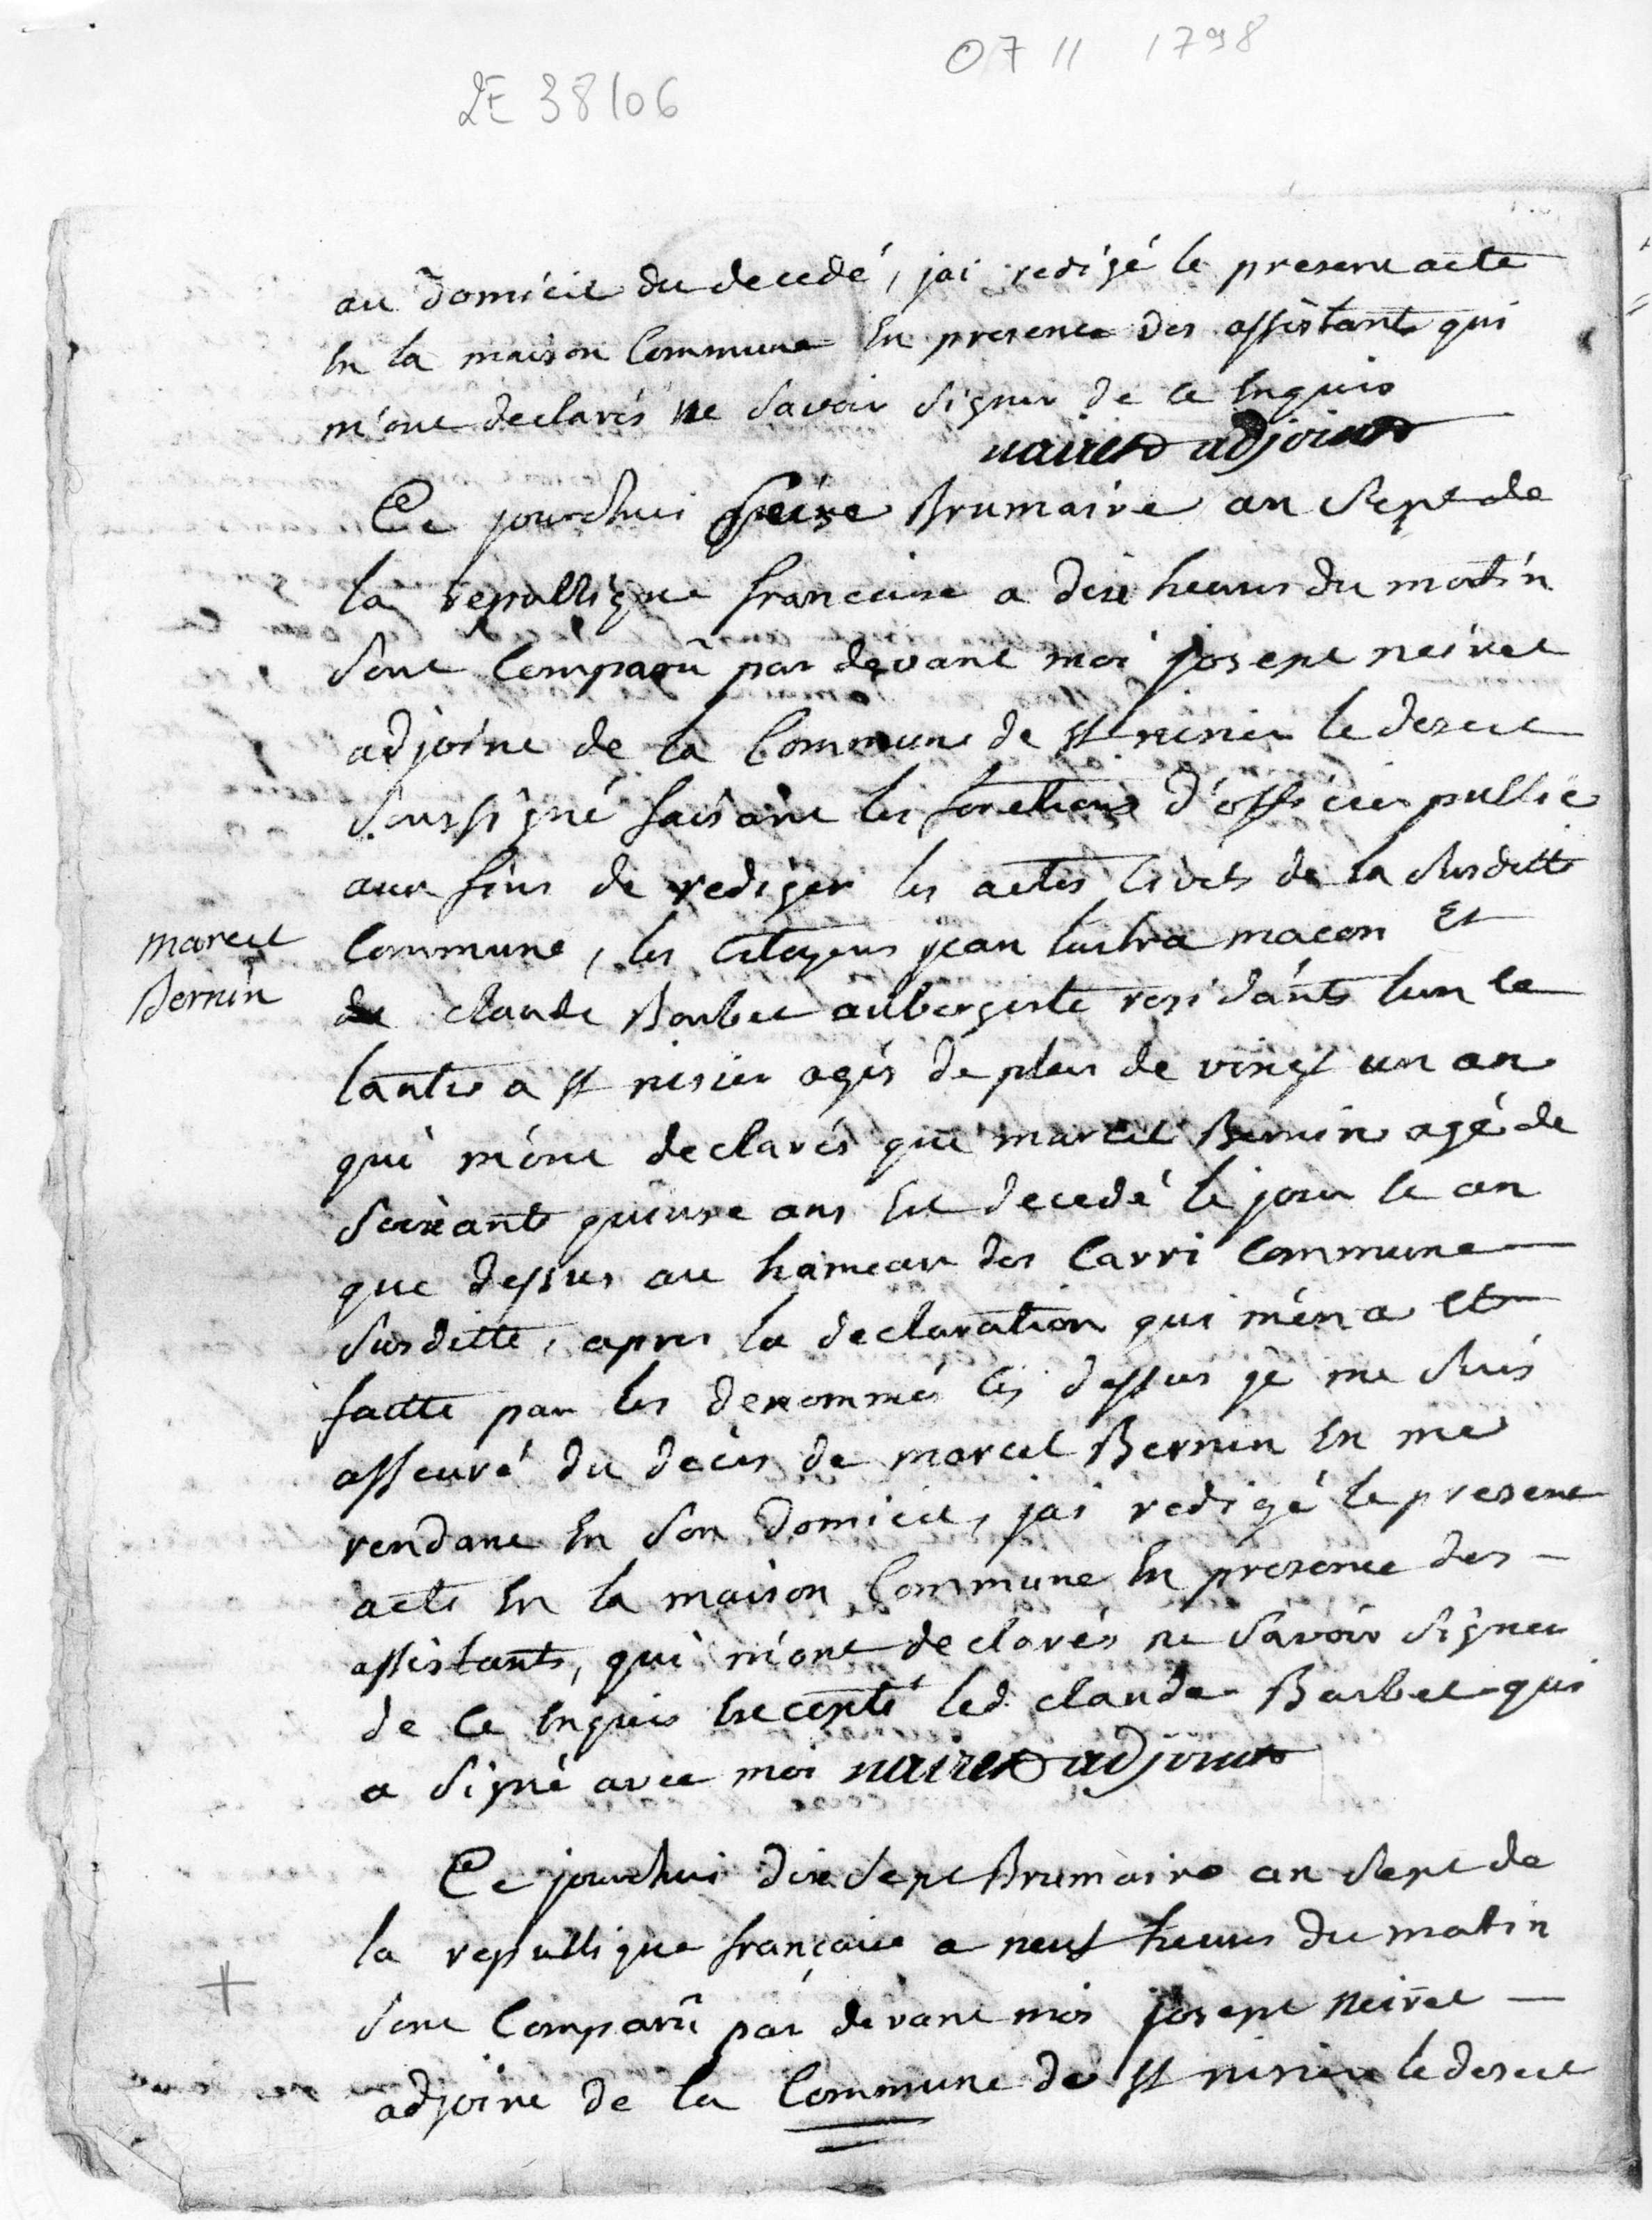 07 11 1798
2E 38106
au domicile du decedé, jai redigé le present acte
En la maison Commune En presence des assistants qui
m'ont declarés ne Savoir Signer de ce Enquis
nairet adjoint
Ce jourdhui Seize Brumaire an Sept de
la republique francaise a dix heures du matin
Sont Comparû par devant moi josept neiret
adjoint de la Commune de st nisier le desert
Soussigné faisant les fonctions d'officier public
aux fins de rediger les actes Civils de la Susditte
Commune, les Citoyens jean macon Et
claude Barbet aubergiste residants lun Ce
lautre a st nisier agés de plus de vingt un an
qui m'ont declarés que marcel Bernin agé de
Soixante quinze ans Est decedé le jour le an
que dessus au hameau des Carri Commune
Susditte, apres la declaration qui m'en a Eté
faitte par les denommés Cy dessus je me Suis
asseuré du décès de marcel Bernin En me
rendant En Son domicile, jai redigé le present
acte En la maison Commune En presence des
assistants, qui m'ont declarés ne Savoir Signer
de Ce Enquis Excepté led. claude Barbet qui
a Signé avec moi nairet adjoint
marcel
Bernin
Ce jourdhui dix Sept Brumaire an Sept de
la republique française a neuf heures du matin
Sont Comparû par devant moi josept Neiret
adjoint de la Commune de st nisier le desert